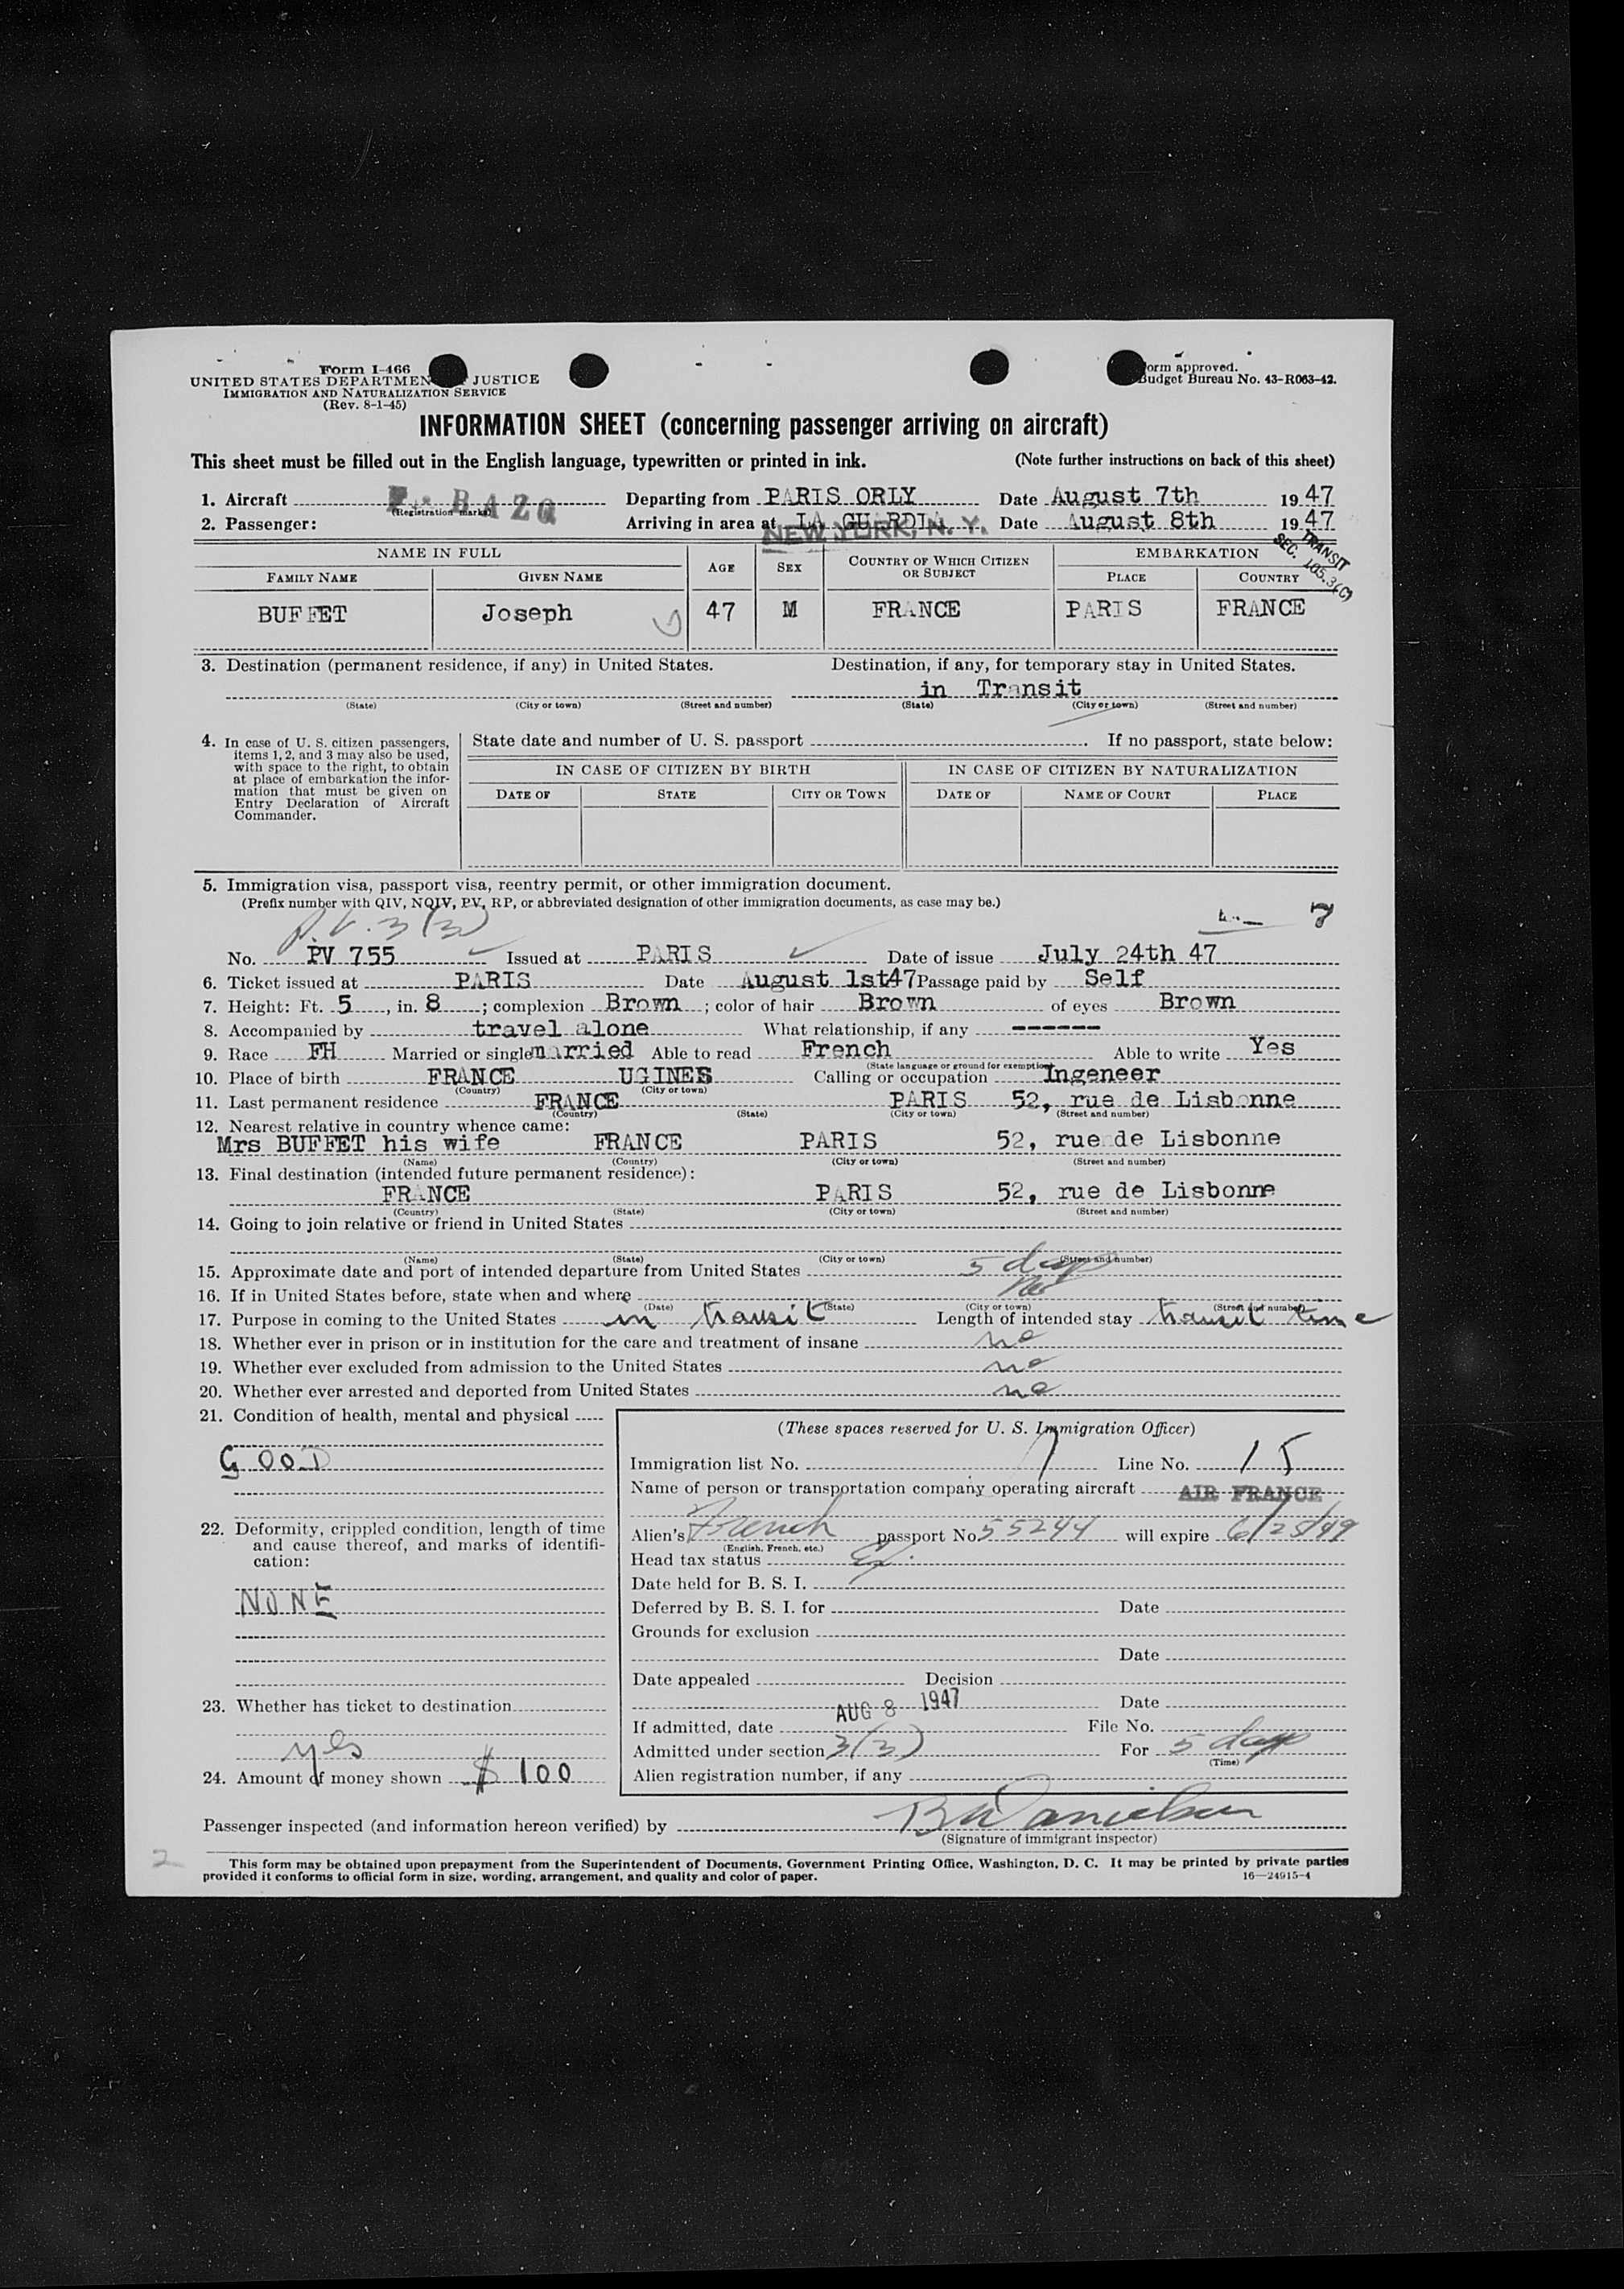 Form I-466
UNITED STATES DEPARTMENT OF JUSTICE
IMMIGRATION AND NATURALIZATION SERVICE
(Rev. 8-1-45)
Form approved.
Budget Bureau No. 43-R063-42.
INFORMATION SHEET (concerning passenger arriving on aircraft)
This sheet must be filled out in the English language, typewritten or printed in ink. (Note further instructions on back of this sheet)
1. Aircraft F-BAZQ Departing from PARIS ORLY Date August 7th 1947
(Registration marks)
2. Passenger: Arriving in area at LA GUARDIA Date August 8th 1947
NEW YORK, N. Y.
TRANSIT
SEC. 105.3(C)
NAME IN FULL AGE SEX COUNTRY OF WHICH CITIZEN OR SUBJECT EMBARKATION
FAMILY NAME GIVEN NAME PLACE COUNTRY
BUFFET Joseph 47 M FRANCE PARIS FRANCE
3. Destination (permanent residence, if any) in United States. Destination, if any, for temporary stay in United States.
in Transit
(State) (City or town) (Street and number) (State) (City or town) (Street and number)
4. In case of U. S. citizen passengers, items 1, 2, and 3 may also be used, with space to the right, to obtain at place of embarkation the information that must be given on Entry Declaration of Aircraft Commander.
State date and number of U. S. passport . If no passport, state below:
IN CASE OF CITIZEN BY BIRTH IN CASE OF CITIZEN BY NATURALIZATION
DATE OF STATE CITY OR TOWN DATE OF NAME OF COURT PLACE
5. Immigration visa, passport visa, reentry permit, or other immigration document.
(Prefix number with QIV, NQIV, PV, RP, or abbreviated designation of other immigration documents, as case may be.)
P.V. 3(3) 7
No. PV 755 Issued at PARIS Date of issue July 24th 47
6. Ticket issued at PARIS Date August 1st47 Passage paid by Self
7. Height: Ft. 5, in. 8; complexion Brown; color of hair Brown of eyes Brown
8. Accompanied by travel alone What relationship, if any ------
9. Race FH Married or single married Able to read French Able to write Yes
(State language or ground for exemption)
10. Place of birth FRANCE UGINES Calling or occupation Ingeneer
(Country) (City or town)
11. Last permanent residence FRANCE PARIS 52, rue de Lisbonne
(Country) (State) (City or town) (Street and number)
12. Nearest relative in country whence came:
Mrs BUFFET his wife FRANCE PARIS 52, rue de Lisbonne
(Name) (Country) (City or town) (Street and number)
13. Final destination (intended future permanent residence):
FRANCE PARIS 52, rue de Lisbonne
(Country) (State) (City or town) (Street and number)
14. Going to join relative or friend in United States
(Name) (State) (City or town) (Street and number)
15. Approximate date and port of intended departure from United States 5 days
16. If in United States before, state when and where no
(Date) (State) (City or town) (Street and number)
17. Purpose in coming to the United States in transit Length of intended stay transit time
18. Whether ever in prison or in institution for the care and treatment of insane no
19. Whether ever excluded from admission to the United States no
20. Whether ever arrested and deported from United States no
21. Condition of health, mental and physical
GOOD
22. Deformity, crippled condition, length of time and cause thereof, and marks of identification:
NONE
23. Whether has ticket to destination
yes
24. Amount of money shown $ 100
(These spaces reserved for U. S. Immigration Officer)
Immigration list No. 7 Line No. 15
Name of person or transportation company operating aircraft AIR FRANCE
Alien's French passport No. 55244 will expire 6/25/49
(English, French, etc.)
Head tax status Ex.
Date held for B. S. I.
Deferred by B. S. I. for Date
Grounds for exclusion
Date
Date appealed Decision
Date
If admitted, date AUG 8 1947 File No.
Admitted under section 3(3) For 5 days
(Time)
Alien registration number, if any
Passenger inspected (and information hereon verified) by
(Signature of immigrant inspector)
2
This form may be obtained upon prepayment from the Superintendent of Documents, Government Printing Office, Washington, D. C. It may be printed by private parties
provided it conforms to official form in size, wording, arrangement, and quality and color of paper. 16—24915-4